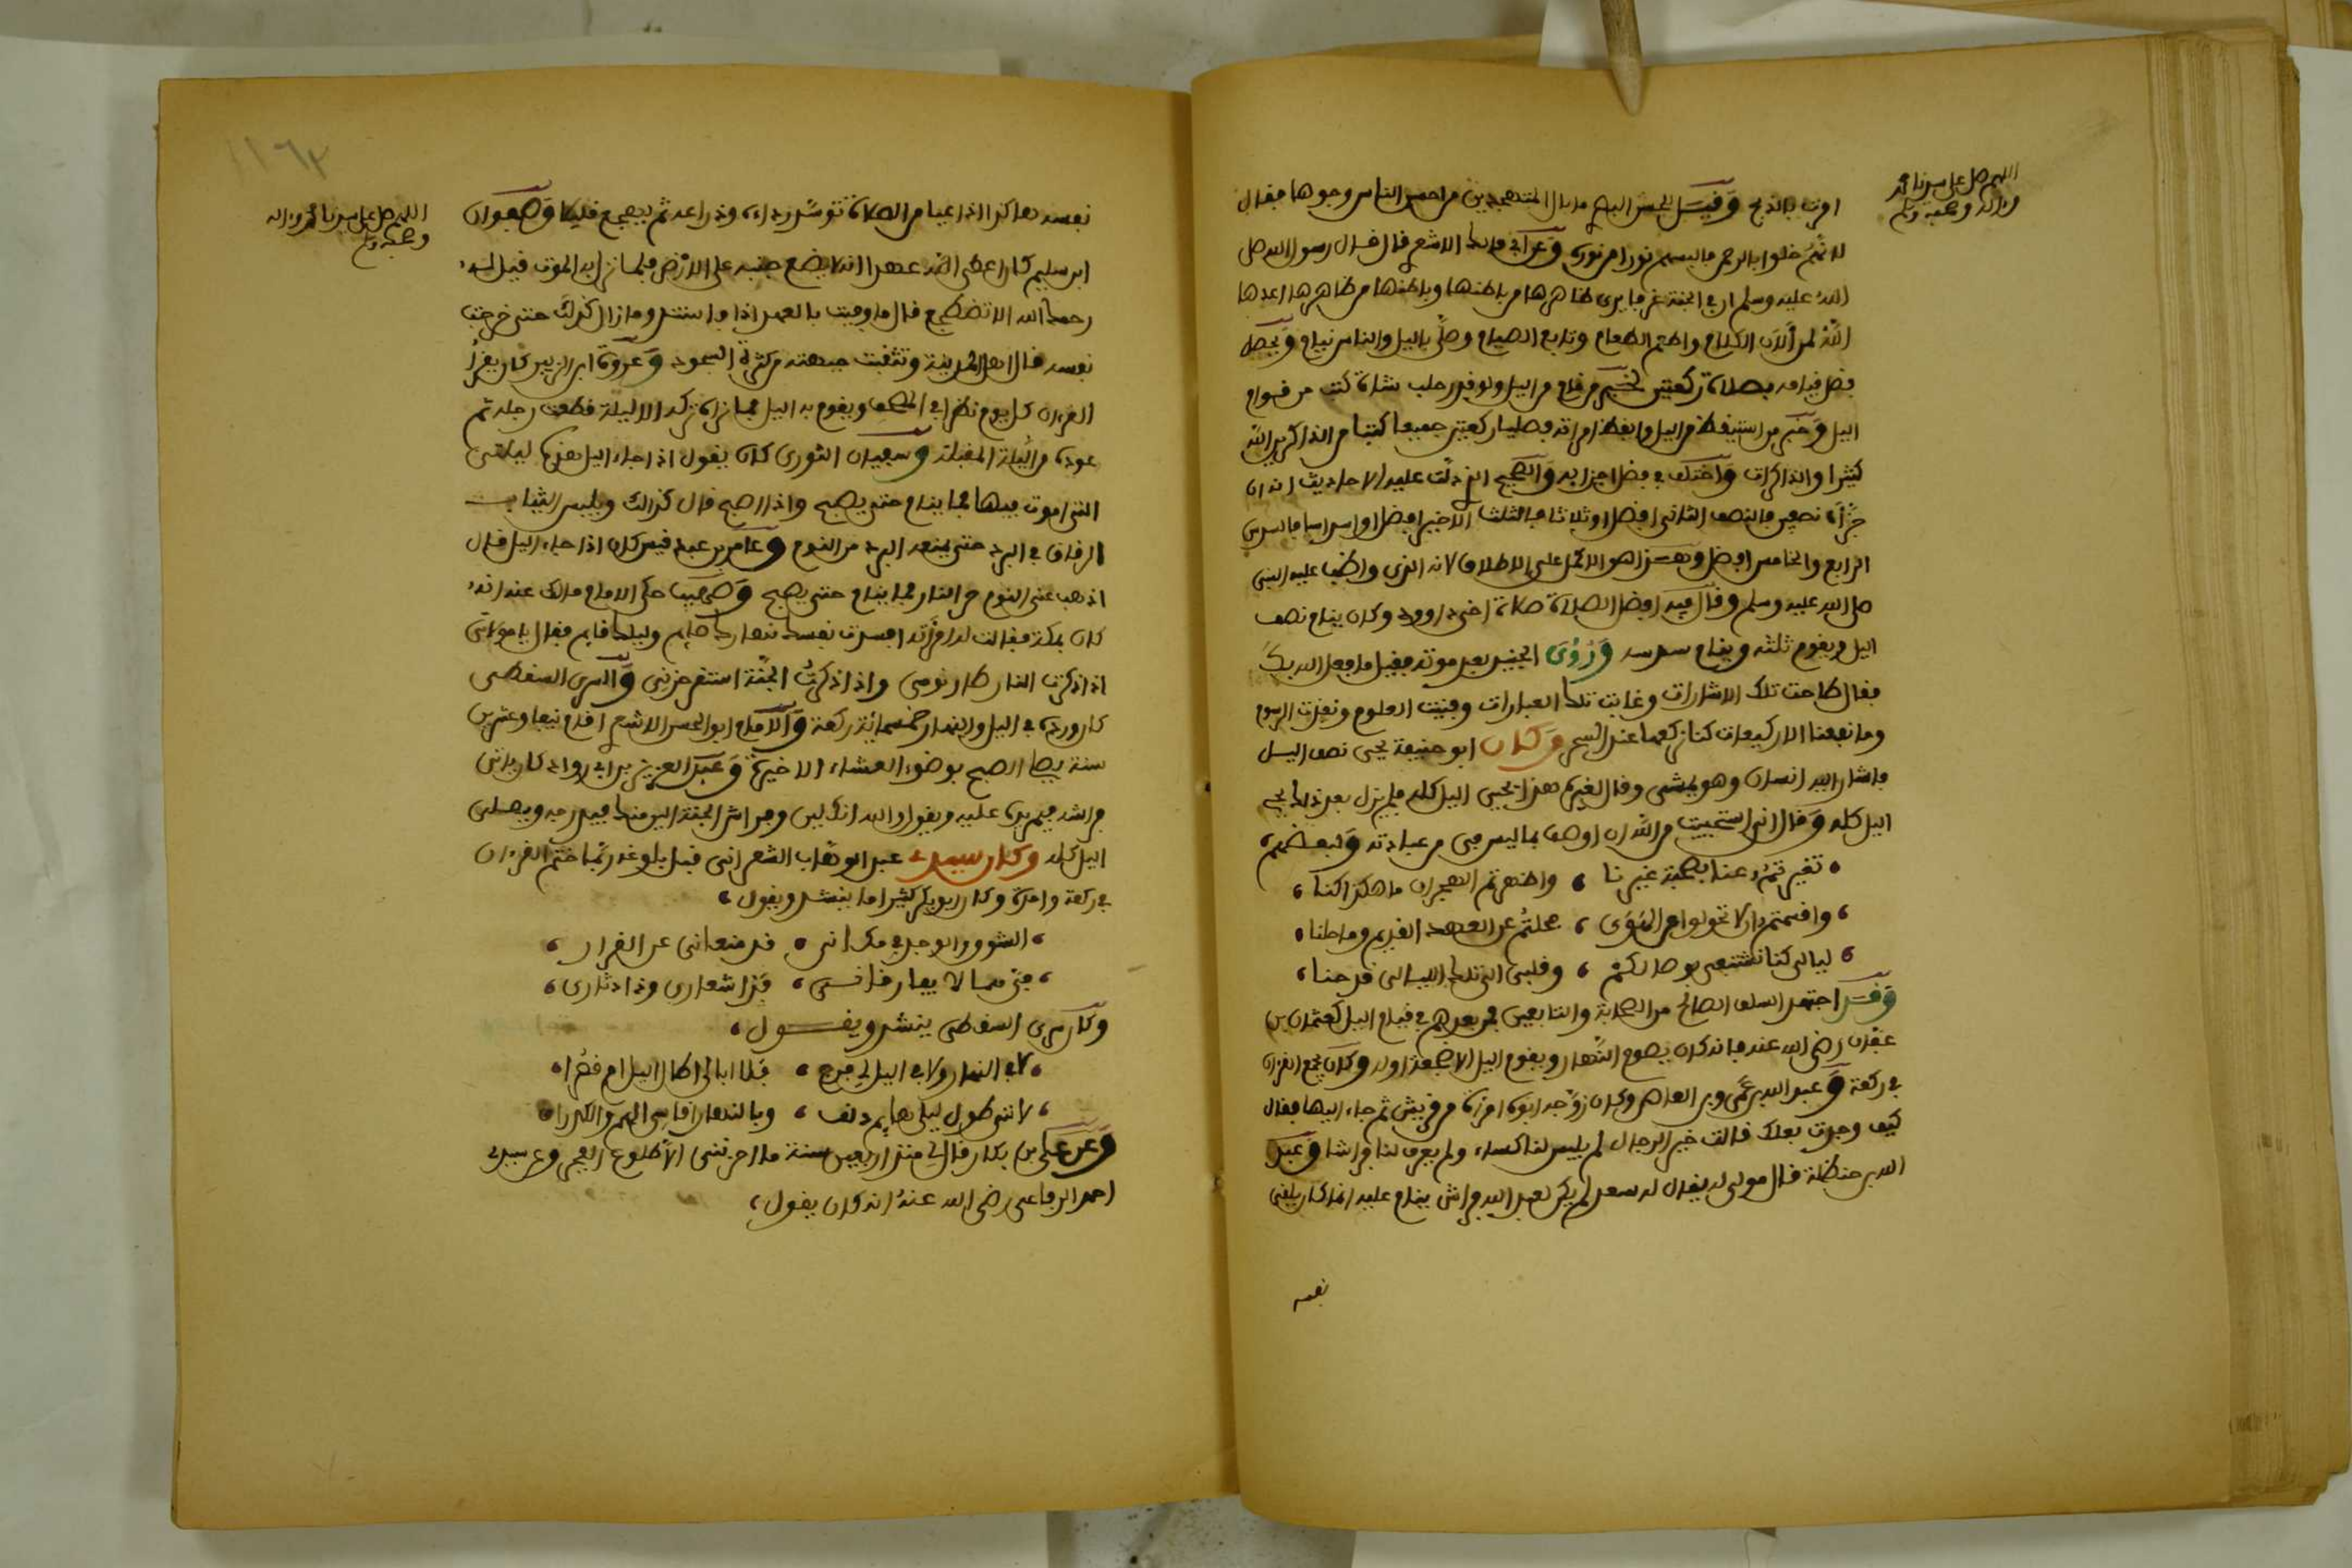 اللهم صل على سيدنا محمد
وءاله وصحبه وسلم
امرت بالذبح وقيل للحسن البصري ما بال المتهجدين من احسن الناس وجوها فقال
لانهم خلوا بالرحمن فالبسهم نورا من نوره وعن ابي مالك الاشعري قال قال رسول الله صلى
الله عليه وسلم ان في الجنة غرفا يرى ظاهرها من باطنها وباطنها من ظاهرها اعدها
الله لمن ألان الكلام واطعم الطعام وتابع الصيام وصلى باليل والناس نيام ويحصل
فضل قيامه بصلاة ركعتين لخبر من قام من اليل ولو قدر حلب شاة كتب من قوام
اليل وخبر من استيقظ من اليل وايقظ امراته فصليا ركعتين جميعا كتبا من الذاكرين الله
كثيرا والذاكرات واختلف في فضل اجزايه والصحيح الذي دلت عليه الاحاديث انه ان
جزأه نصفين فالنصف الثاني افضل او ثلاثا فالثلث الاخير افضل او اسداسا فالسدس
الرابع والخامس افضل وهذا هو الاكمل على الاطلاق لانه الذي واظب عليه النبي
صلى الله عليه وسلم وقال فيه افضل الصلاة صلاة اخي داوود وكان ينام نصف
اليل ويقوم ثلثه وينام سدسه ورؤى الجنيد بعد موته فقيل ما فعل الله بك
فقال طاحت تلك الاشارات وغابت تلك العبارات وفنيت العلوم ونفدت الرسوم
وما نفعنا الا ركيعات كنا نركعها عند السحر وكان ابو حنيفة يحيى نصف اليل
فاشار اليه انسان وهو يمشي وقال لغيره هذا يحيي اليل كله فلم يزل بعد ذلك يحيي
اليل كله وقال اني استحييت من الله ان اوصف بما ليس في من عبادته ولبعضهم
تغيرتم عنا بصحبة غيرنا ، واظهرتم الهجران ما هكذا كنا ،
، واقسمتم ان لا تحولوا عن الهوى ، فحلتم عن العهد القديم وما حلنا
، ليالي كنا نشتفى بوصالكم ، وقلبي الى تلك الليالي قد حنا ،
وقد اجتهد السلف الصالح من الصحابة والتابعين فمن بعدهم في قيام اليل كعثمان بن
عفان رضي الله عنه فانه كان يصوم النهار ويقوم اليل الا هجعة اوله وكان يجمع القرءان
في ركعة وعبد الله بن عمرو بن العاص وكان زوجه ابوه امرأة من قريش ثم جاء اليها فقال
كيف وجدت بعلك قالت خير الرجال لم يلبس لنا كساء ولم يعرف لنا فراشا وعبد
الله بن حنظلة قال مولى له يقال له سعد لم يكن لعبد الله فراش ينام عليه انما كان يلقي
نفسه
١١٦٣
اللهم صل على سيدنا محمد وءاله
وصحبه وسلم
نفسه هاكذا اذا عيا من الصلاة توسد رداءه وذراعه ثم يهجع قليلا وصفوان
ابن سليم كان اعطى الله عهدا انه لا يضع جنبه على الارض فلما نزل به الموت قيل له
رحمك الله الا تضطجع قال ما وفيت بالعهد اذا واستند وما زال كذلك حتى خرجت
نفسه قال اهل المدينة وتثقبت جبهته من كثرة السجود وعروة ابن الزبير كان يقرأ
القرءان كل يوم نظرا في المصحف ويقوم به اليل فما تركه الا ليلة قطعت رجله ثم
عوده من الليلة المقبلة وسفيان الثوري كان يقول اذا جاء اليل هذه ليلتي
التي اموت فيها فما ينام حتى يصبح واذا اصبح قال كذلك ويلبس الثياب
الرقاق في البرد حتى يمنعه البرد من النوم وعامر بن عبد قيس كان اذا جاء اليل قال
اذهب عني النوم حر النار فما ينام حتى يصبح وصهيب حكى الامام مالك عنه انه
كان بمكة فقالت له امرأته افسدت نفسك نهارك صايم وليلك قايم فقال يا مولاتي
اذا ذكرت النار طار نومي واذا ذكرت الجنة اشتد حزني والسري السقطي
كان ورده في اليل والنهار خمسمائة ركعة والامام ابو الحسن الاشعري اقام نيفا وعشرين
سنة يصلي الصبح بوضوء العشاء الاخيرة وعبد العزيز بن ابي رواد كان ياتي
فراشه فيمر يده عليه ويقول والله انك لين وفراش الجنة الين منك فيدرجه ويصلي
اليل كله وكان سيدي عبد الوهاب الشعراني قبل بلوغه ربما ختم القرءان
في ركعة واحدة وكان ابو بكر كثيرا ما ينشد ويقول ،
، الشوق والوجد في مكاني ، قد منعاني عن القرار ،
، هما معي لا يفارقاني ، فذا شعاري وذا دثاري ،
وكان سري السقطي ينشد ويقول ،
، لا في النهار ولا في اليل لي فرج ، فلا ابالي اطال اليل ام قصرا
، لانني طول ليلي هايم دنف ، وبالنهار اقاسي الهم والكدرا
وعن علي بن بكار قال لي منذ اربعين سنة ما احزنني الا طلوع الفجر وعن سيدي
احمد الرفاعي رضي الله عنه انه كان يقول ،